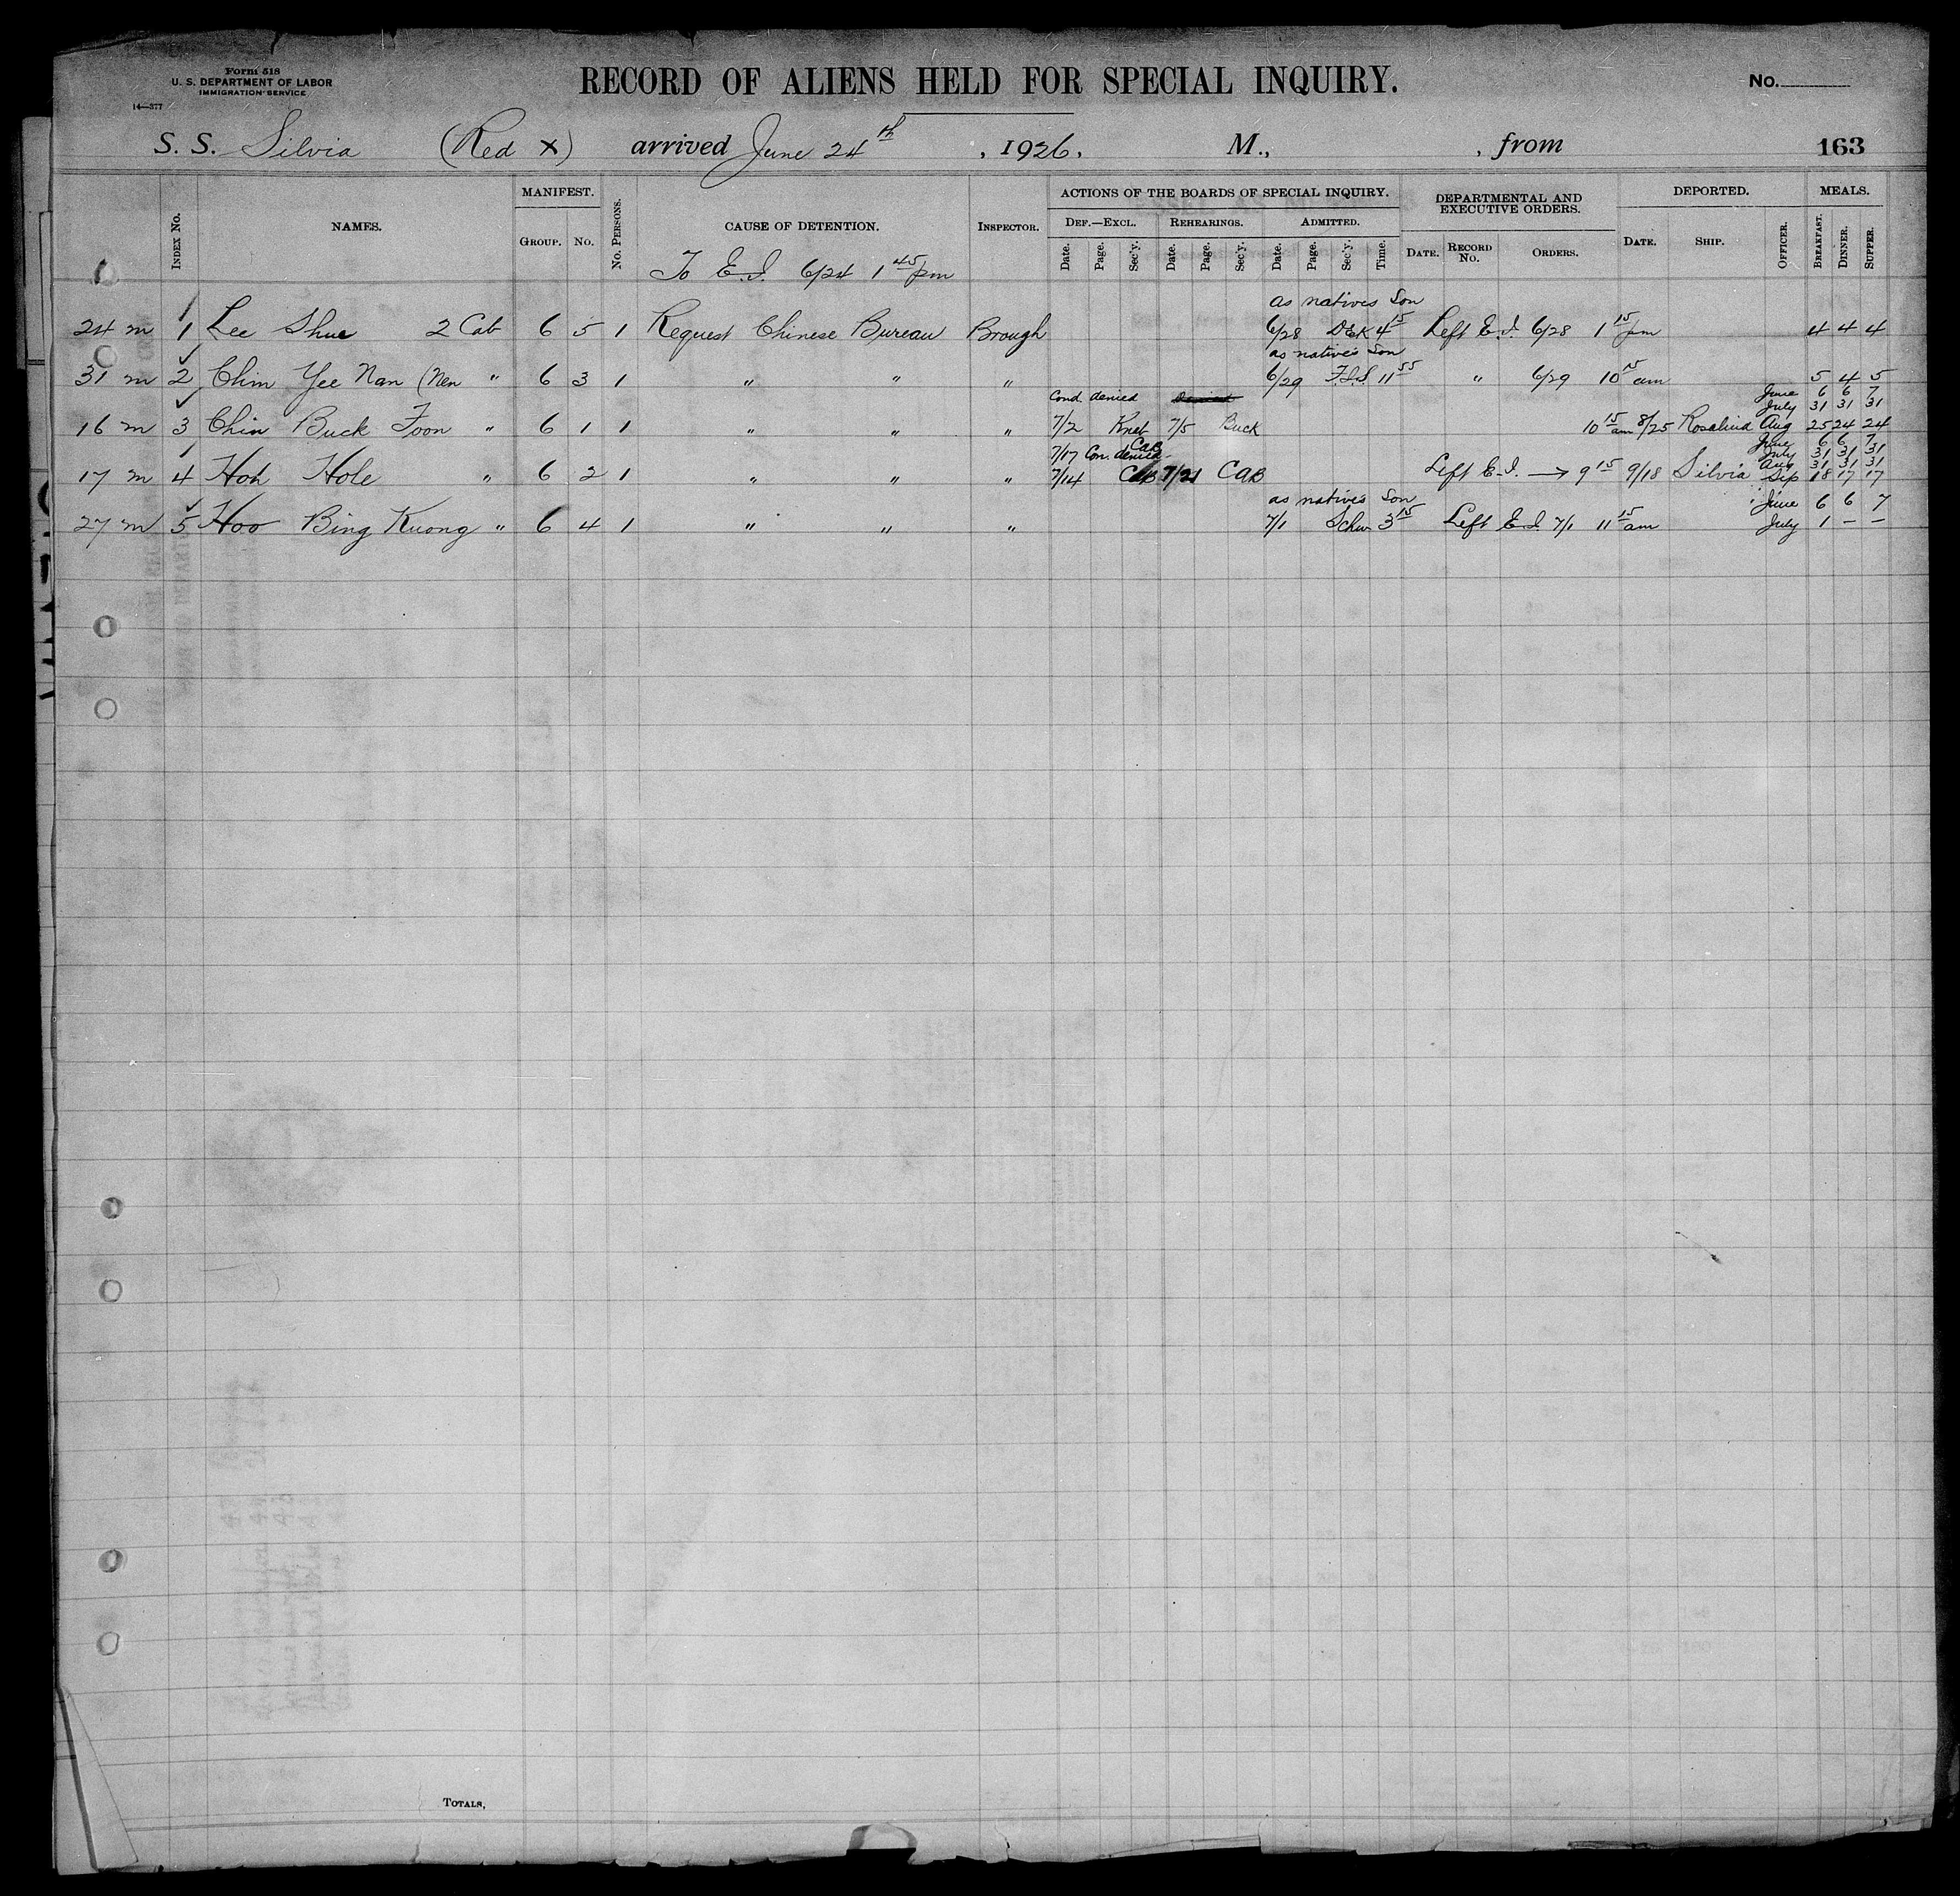 Form 518
U. S. DEPARTMENT OF LABOR
IMMIGRATION SERVICE
14—377
RECORD OF ALIENS HELD FOR SPECIAL INQUIRY.
No.
S. S. Silvia (Red X) arrived June 24th, 1926, M., , from 163
INDEX NO. NAMES. MANIFEST. GROUP. NO. NO. PERSONS. CAUSE OF DETENTION. INSPECTOR. ACTIONS OF THE BOARDS OF SPECIAL INQUIRY. DEF.—EXCL. Date. Page. Sec'y. REHEARINGS. Date. Page. Sec'y. ADMITTED. Date. Page. Sec'y. Time. DEPARTMENTAL AND EXECUTIVE ORDERS. DATE. RECORD NO. ORDERS. DEPORTED. DATE. SHIP. OFFICER. MEALS. BREAKFAST. DINNER. SUPPER.
To E.I. 6/24 1 45 pm
as natives Son
24 m 1 Lee Shue 2 Cab 6 5 1 Request Chinese Bureau Brough 6/28 DEK 4 15 Left E.I. 6/28 1 15 pm 4 4 4
as native's Son
31 m 2 Chin Yee Nan (Nen " 6 3 1 " " " 6/29 F.I.S. 11 55 " 6/29 10 15 am 5 4 5
Cond. denied Denied June 6 6 7
July 31 31 31
16 m 3 Chin Buck Foon " 6 1 1 " " " 7/2 Knet 7/5 Buck 10 15 am 8/25 Rosalind Aug 25 24 24
June 6 6 7
7/17 Con. denied CAB July 31 31 31
Aug 31 31 31
17 m 4 Hoh Hole " 6 2 1 " " " 7/14 CAB 7/21 CAB Left E.I. → 9 15 9/18 Silvia Sep 18 17 17
as natives Son June 6 6 7
27 m 5 Hoo Bing Kuong " 6 4 1 " " " 7/1 Schw 3 15 Left E.I. 7/1 11 15 am July 1 – –
TOTALS,